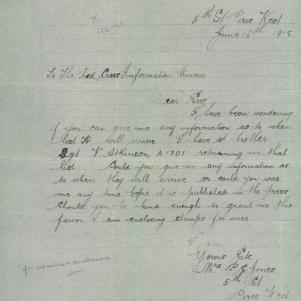 5th St Pirie West
June 16th 1918
To The Red Cross Information Bureau
Dear Sirs
I have been wondering
if you can give me any information as to when
list H will arrive I have a brother
Sgt V Atkinson A 1201 returning in that
list Could you give me any information as
to when they will arrive or could you wire
me any time before it is published in the press
Should you be kind enough to grant me this
favor I am enclosing stamps for wire
I am
Yours Etc
Mrs P E Jones
5th St
Pirie West